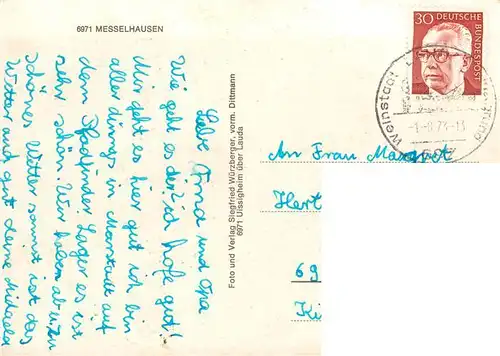 6971 MESSELHAUSEN
Liebe Oma und Opa
Wie geht es dir? ich hofe gut!
Mir geht es hier gut ich bin
aller dings in Marstadt auf
dem Pfadfinder Lager es ist
sehr schön. Wir haben ab u. zu
schönes Wetter sonst ist das
Wetter auch gut deine Michaela
Foto und Verlag Siegfried Würzberger, vorm. Dittmann
6971 Uissigheim über Lauda
30 DEUTSCHE
BUNDESPOST
Weinstadt
An Frau Margret
Hert
69
Ki